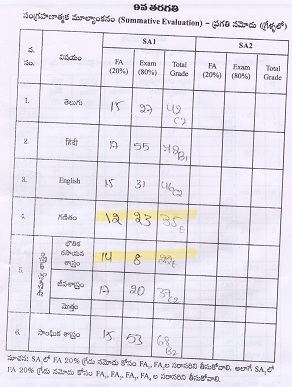 9వ తరగతి
సంగ్రహణాత్మక మూల్యాంకనం (Summative Evaluation) – ప్రగతి నమోదు (గ్రేళ్ళలో)
వ. సం. విషయం SA1 SA2
FA (20%) Exam (80%) Total Grade FA (20%) Exam (80%) Total Grade
1. తెలుగు 15 27 42 C2
2. हिंदी 17 55 B1
3. English 15 31 46 C2
4. గణితం 12 23 35 E
5. సామాన్య శాస్త్రం
భౌతిక రసాయన శాస్త్రం 14 8 22 E
జీవశాస్త్రం 17 20 37
మొత్తం
6. సాంఘిక శాస్త్రం 15 53 68 B2
సూచన: SA₁లో FA 20% గ్రేడు నమోదు కోసం FA₁, FA₂ల సరాసరిని తీసుకోవాలి. అలాగే SA₂లో
FA 20% గ్రేడు నమోదు కోసం FA₁, FA₂, FA₃, FA₄ ల సరాసరిని తీసుకోవాలి.